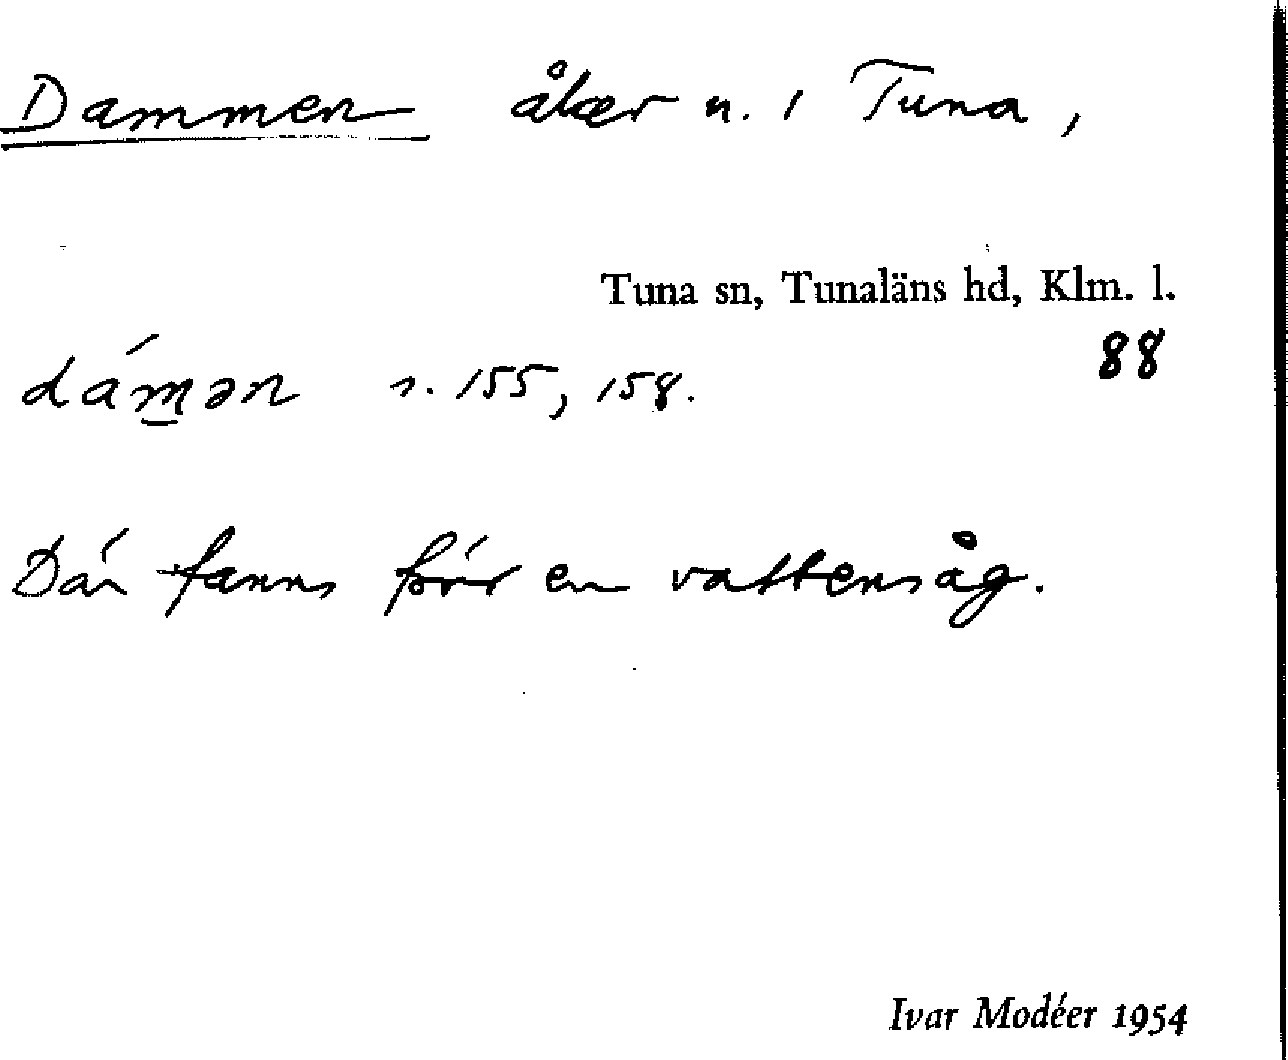 Dammen åker n. 1 Tuna,
Tuna sn, Tunaläns hd, Klm. l.
88
dám̲ən s. 155, 158.
Där fanns förr en vattensåg.
Ivar Modéer 1954